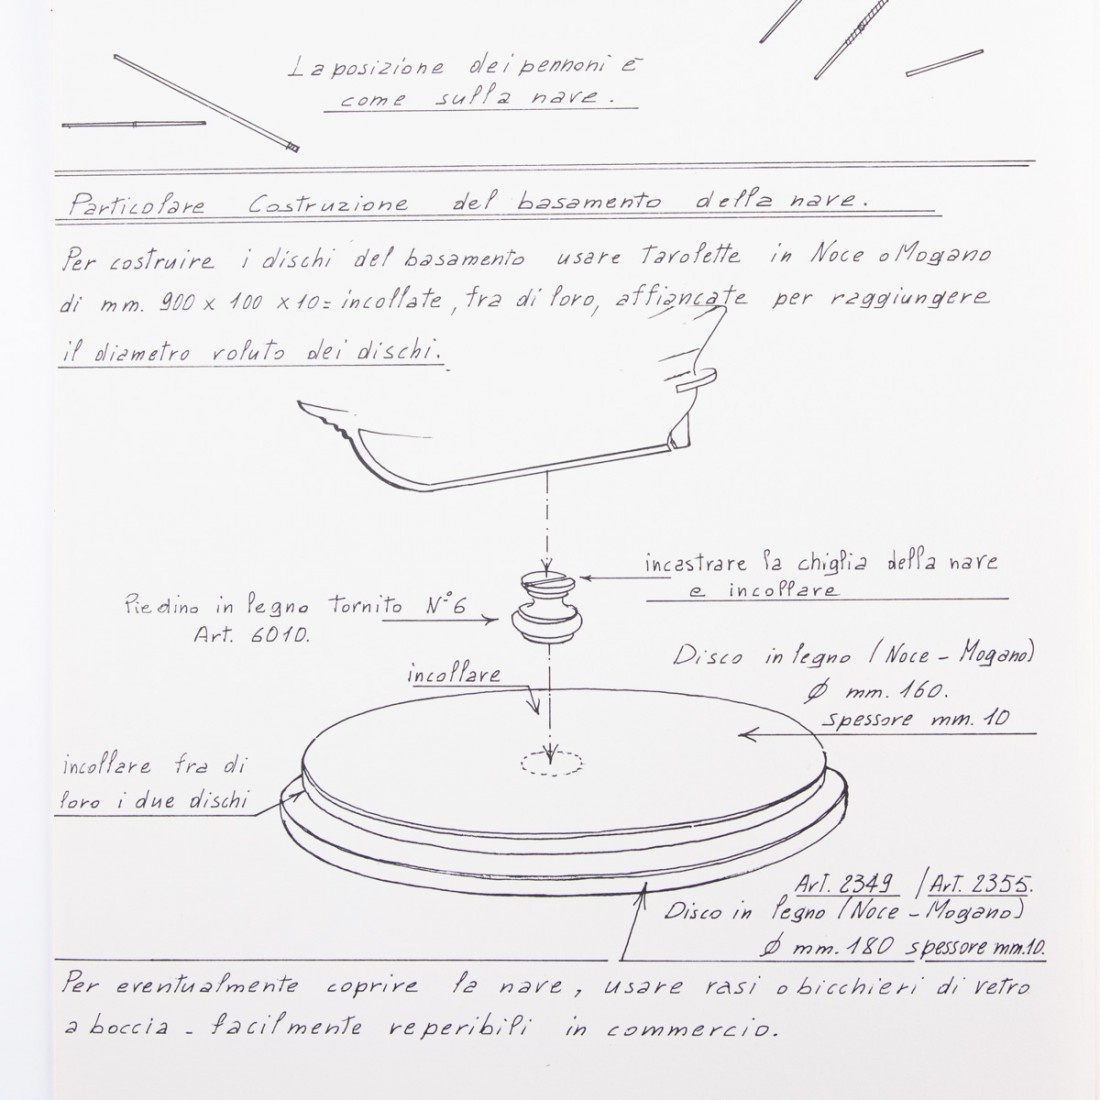 La posizione dei pennoni è
come sulla nave.
Particolare Costruzione del basamento della nave.
Per costruire i dischi del basamento usare Tavolette in Noce o Mogano
di mm. 900 x 100 x 10= incollate, fra di loro, affiancate per raggiungere
il diametro voluto dei dischi.
incastrare la chiglia della nave
e incollare
Piedino in legno Tornito N°6
Art. 6010.
Disco in legno (Noce - Mogano)
Ø mm. 160.
spessore mm. 10
incollare
incollare fra di
loro i due dischi
Art. 2349 / Art. 2355.
Disco in legno (Noce - Mogano)
Ø mm. 180 spessore mm. 10.
Per eventualmente coprire la nave, usare rasi o bicchieri di vetro
a boccia - facilmente reperibili in commercio.